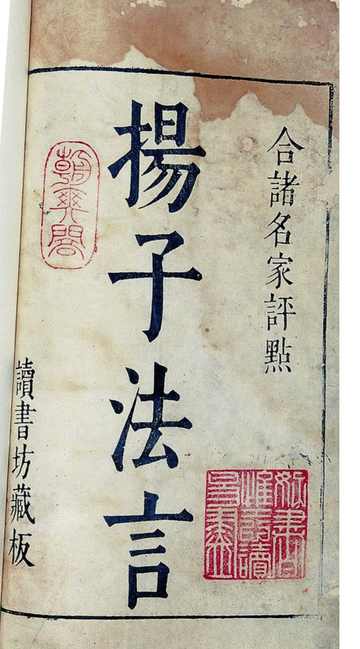 合諸名家評點
揚子法言
讀書坊藏板
朝爽閣